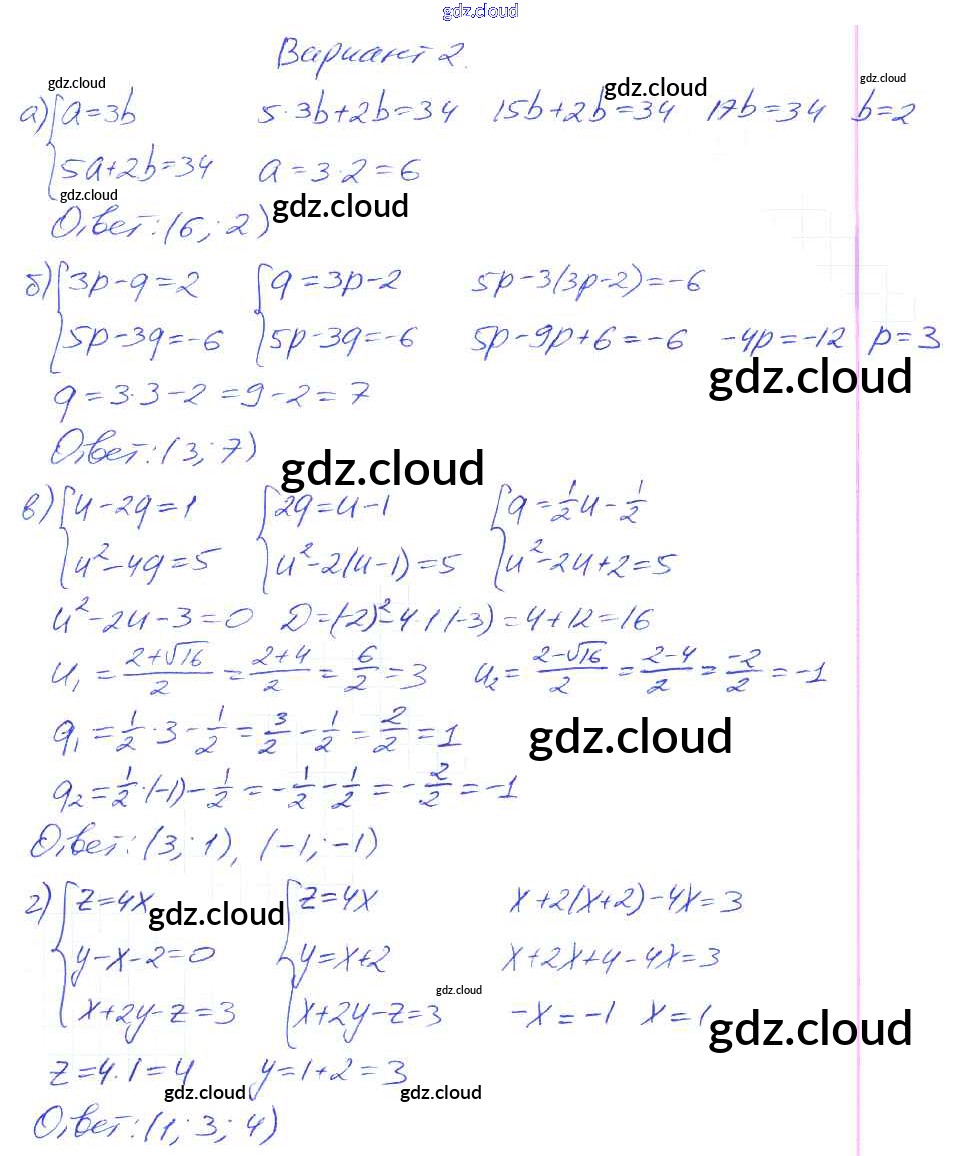 gdz.cloud
Вариант 2.
gdz.cloud gdz.cloud gdz.cloud
а) { a=3b 5·3b+2b=34 15b+2b=34 17b=34 b=2
5a+2b=34 a=3·2=6
gdz.cloud gdz.cloud
Ответ: (6; 2)
б) { 3p-q=2 { q=3p-2 5p-3(3p-2)=-6
5p-3q=-6 5p-3q=-6 5p-9p+6=-6 -4p=-12 p=3
gdz.cloud
q=3·3-2=9-2=7
Ответ: (3; 7) gdz.cloud
в) { u-2q=1 { 2q=u-1 { q=1/2u-1/2
u²-4q=5 u²-2(u-1)=5 u²-2u+2=5
u²-2u-3=0 D=(-2)²-4·1·(-3)=4+12=16
u₁=(2+√16)/2=(2+4)/2=6/2=3 u₂=(2-√16)/2=(2-4)/2=-2/2=-1
q₁=1/2·3-1/2=3/2-1/2=2/2=1 gdz.cloud
q₂=1/2·(-1)-1/2=-1/2-1/2=-2/2=-1
Ответ: (3; 1), (-1; -1)
г) { z=4x gdz.cloud { z=4x x+2(x+2)-4x=3
y-x-2=0 y=x+2 x+2x+4-4x=3
gdz.cloud
x+2y-z=3 x+2y-z=3 -x=-1 x=1 gdz.cloud
z=4·1=4 y=1+2=3
gdz.cloud gdz.cloud
Ответ: (1; 3; 4)